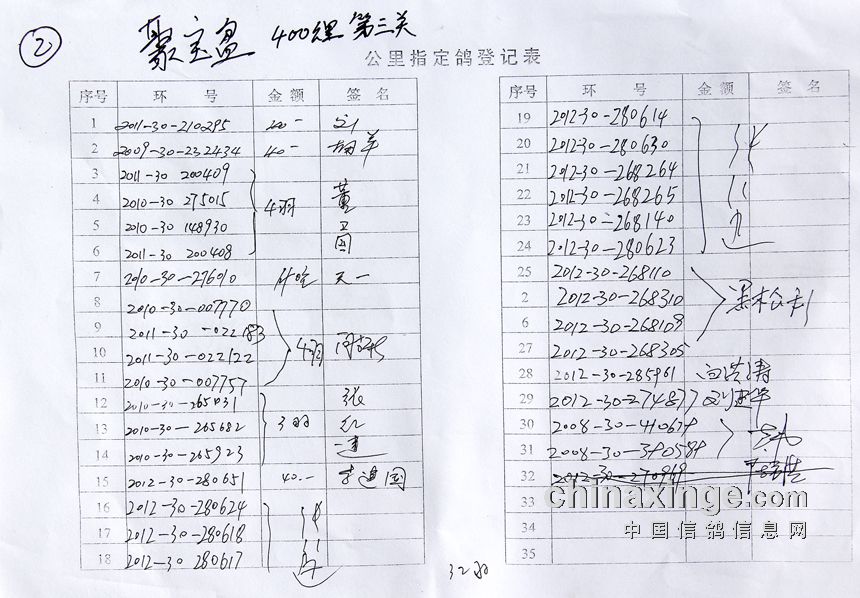 ②
聚宝盆 400公里 第三关
公里指定鸽登记表
序号 环号 金额 签名
1 2011-30-210295
2 2009-30-232434 40-
3 2011-30 200409
4 2010-30 275015 4羽 董
5 2010-30 148930 卫
6 2011-30 200408 国
7 2010-30-276010 天一
8 2010-30-007770
9 2011-30-022183
10 2011-30-022122 4羽
11 2010-30-007757
12 2010-30-265031 张
13 2010-30-265682 3羽 红
14 2010-30-265923
15 2012-30-280651 40.- 李建国
16 2012-30-280624
17 2012-30-280618
18 2012-30 280617
序号 环号 金额 签名
19 2012-30-280614
20 2012-30-280630
21 2012-30-268264
22 2012-30-268265
23 2012-30-268140
24 2012-30-280623
25 2012-30-268110
2 2012-30-268310
6 2012-30-268109
27 2012-30-268305
28 2012-30-285961
29 2012-30-274877 刘建华
30 2008-30-410674
31 2008-30-340584
32 2012-30-270969
33
34
35
32羽
chinaxinge.com
中国信鸽信息网